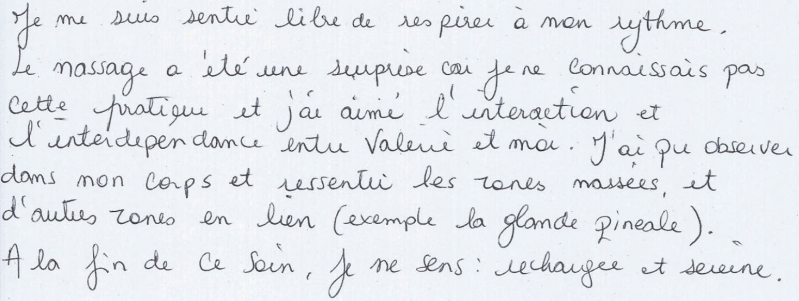 Je me suis sentie libre de respirer à mon rythme.
Le massage a été une surprise car je ne connaissais pas
cette pratique et j'ai aimé l'interaction et
l'interdépendance entre Valérie et moi. J'ai pu observer
dans mon corps et ressentir les zones massées, et
d'autres zones en lien (exemple la glande pinéale).
A la fin de ce soin, je me sens : rechargée et sereine.